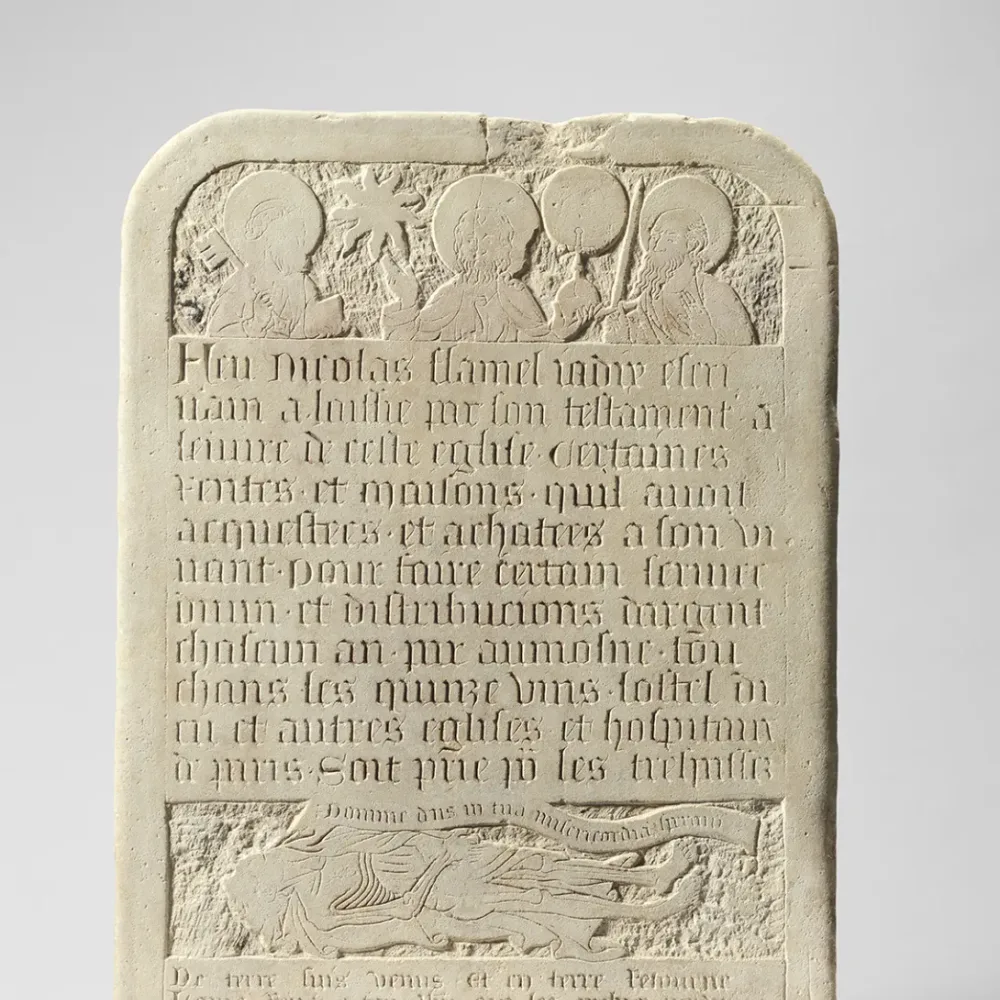 Feu Nicolas flamel iadix escri
uain a laissie par son testament a
leuure de ceste eglise · Certaines
Rentes · et maisons · quil auoit
acquestees · et achatees a son vi
uant · pour faire certain seruice
diuin · et distribucions dargent
chascun an · par aumosne · tou
chans les quinze vins · lostel di
eu et autres eglises et hospitaux
de paris · Soit prie po les trespassez
Domine deus in tua misericordia speraui
De terre suis venus Et en terre Retourne